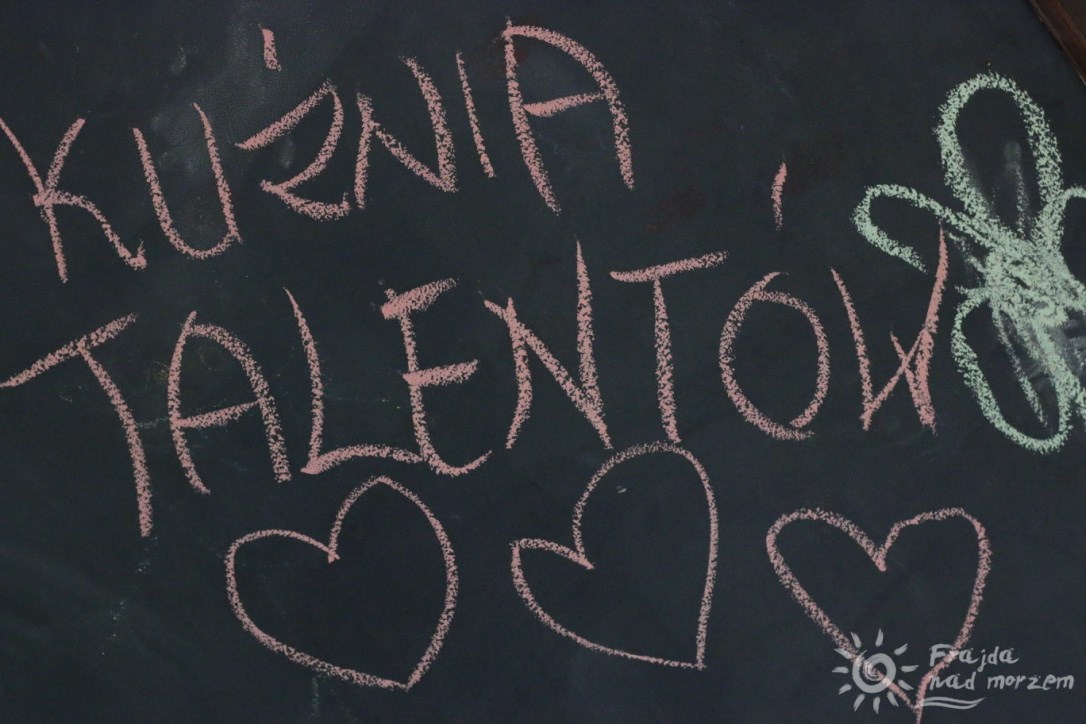 KUŹNIA
TALENTÓW
Frajda
nad morzem